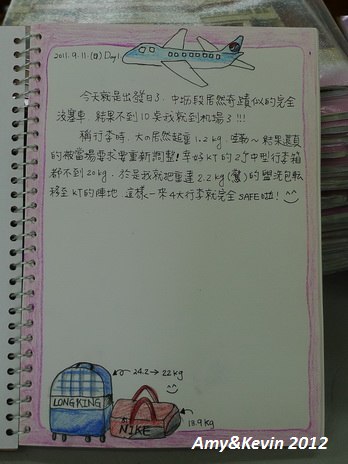 2011.9.11.(日) Day1
今天就是出發日了，中山段居然奇蹟似的完全
沒塞車，結果不到10點我就到機場了!!!
稱行李時，大の居然超重1.2kg，哇勒～結果還真
的被當場要求要重新調整！幸好KT的2个中型行李箱
都不到20kg，於是我就把重達2.2kg(驚)的盥洗包轉
移至KT的陣地，這樣一來4大行李就完全SAFE啦！
24.2→22kg
LONGKING
NIKE
18.9kg
Amy&Kevin 2012